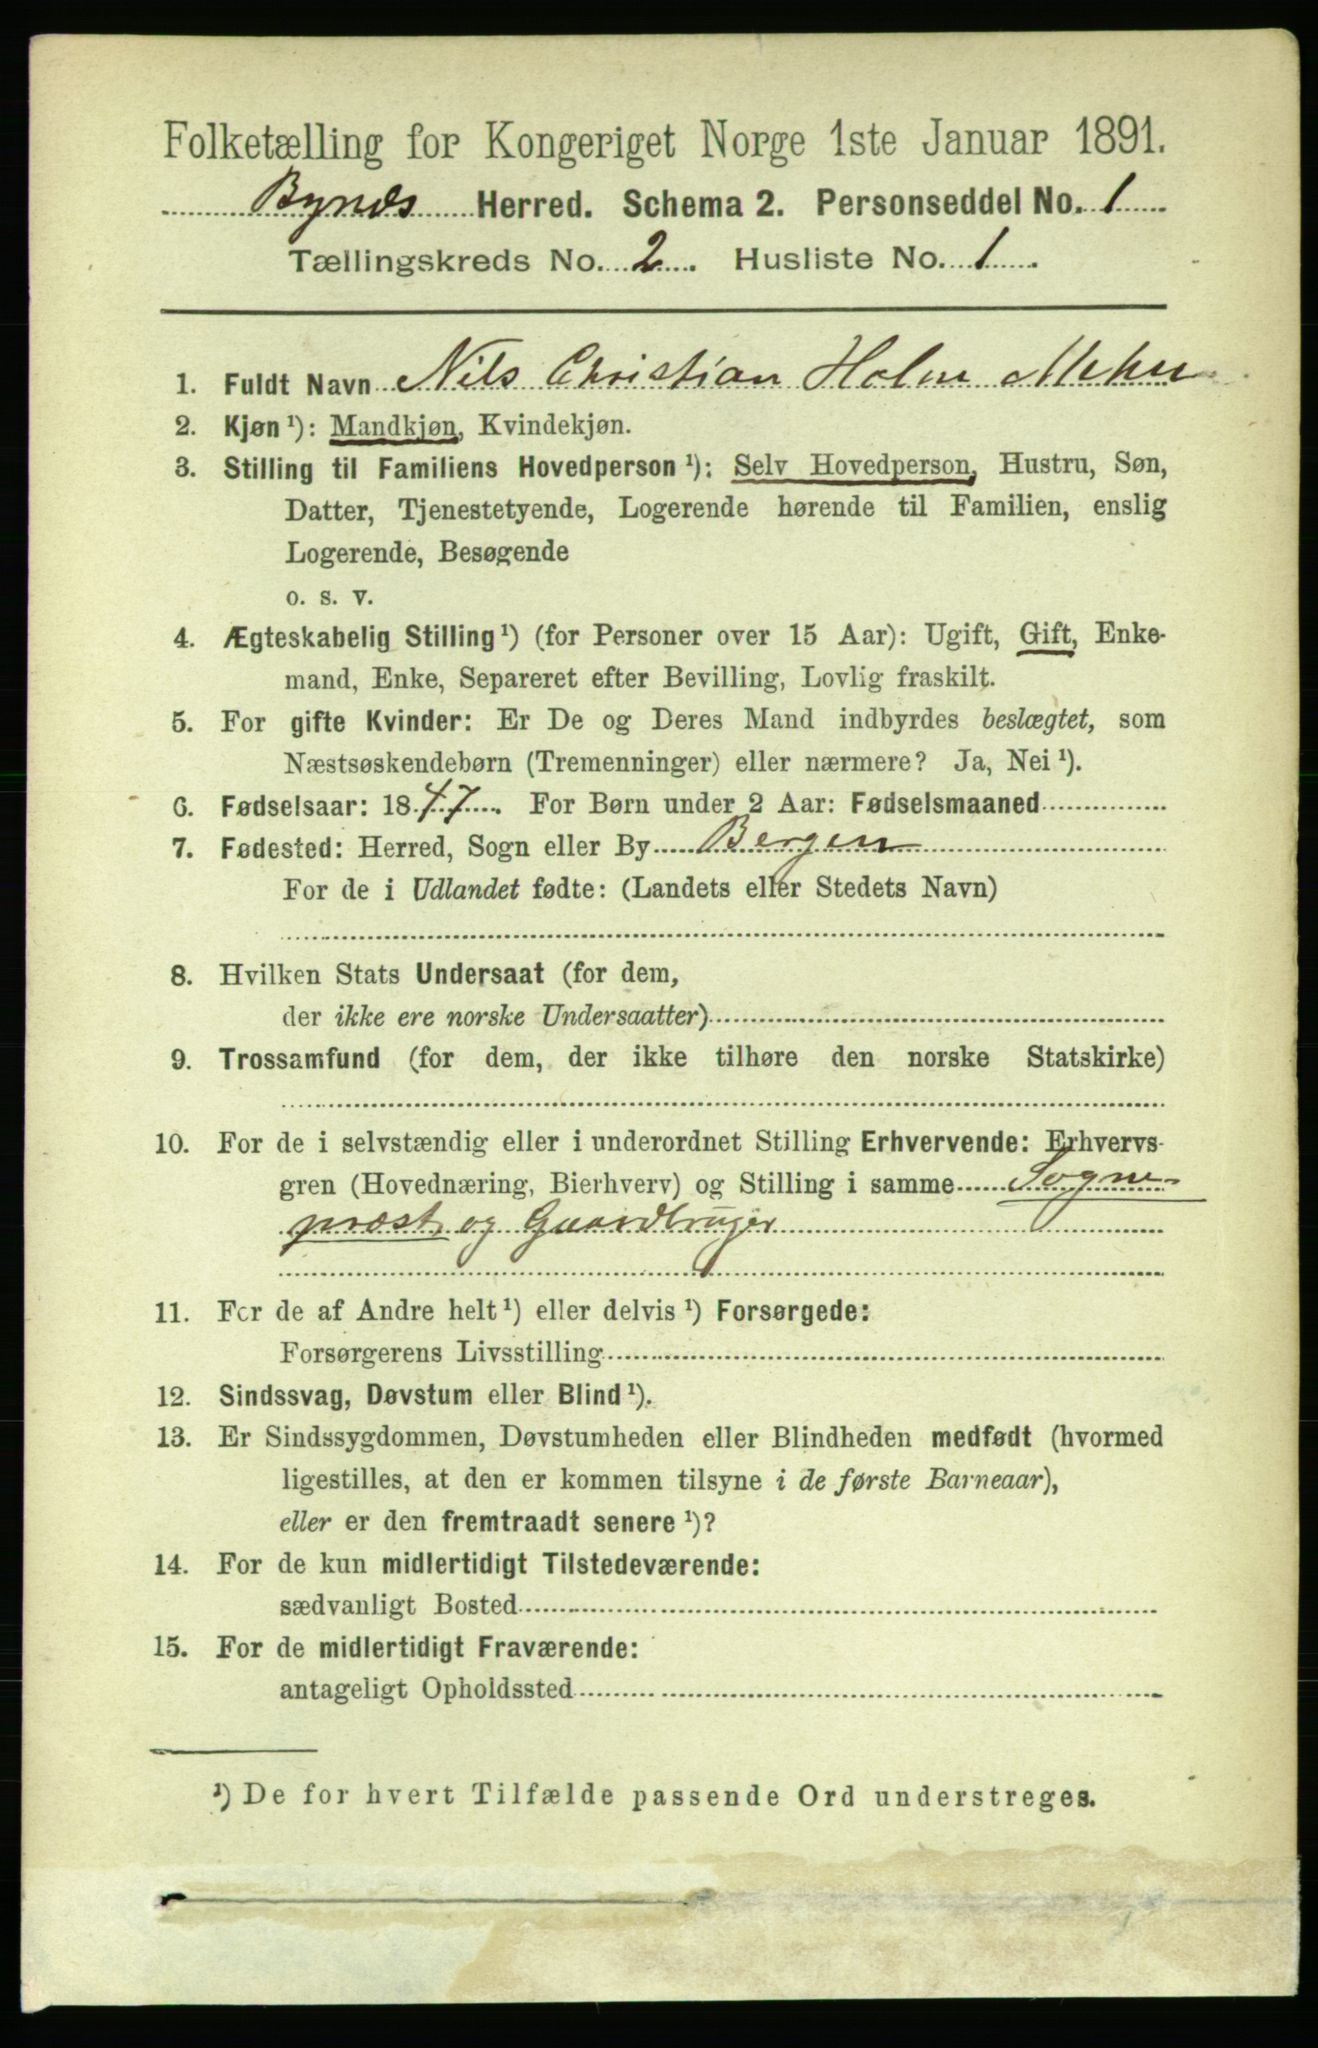 Folketælling for Kongeriget Norge 1ste Januar 1891.
Bynes Herred. Schema 2. Personseddel No. 1
Tællingskreds No. 2. Husliste No. 1.
1. Fuldt Navn Nils Christian Holm
2. Kjøn ¹): Mandkjøn, Kvindekjøn.
3. Stilling til Familiens Hovedperson ¹): Selv Hovedperson, Hustru, Søn,
Datter, Tjenestetyende, Logerende hørende til Familien, enslig
Logerende, Besøgende
o. s. v.
4. Ægteskabelig Stilling ¹) (for Personer over 15 Aar): Ugift, Gift, Enke-
mand, Enke, Separeret efter Bevilling, Lovlig fraskilt.
5. For gifte Kvinder: Er De og Deres Mand indbyrdes beslægtet, som
Næstsøskendebørn (Tremenninger) eller nærmere? Ja, Nei ¹).
6. Fødselsaar: 1847. For Børn under 2 Aar: Fødselsmaaned
7. Fødested: Herred, Sogn eller By Bergen
For de i Udlandet fødte: (Landets eller Stedets Navn)
8. Hvilken Stats Undersaat (for dem,
der ikke ere norske Undersaatter)
9. Trossamfund (for dem, der ikke tilhøre den norske Statskirke)
10. For de i selvstændig eller i underordnet Stilling Erhvervende: Erhvervs-
gren (Hovednæring, Bierhverv) og Stilling i samme Sogne-
præst og Gaardbruger
11. For de af Andre helt ¹) eller delvis ¹) Forsørgede:
Forsørgerens Livsstilling
12. Sindssvag, Døvstum eller Blind ¹).
13. Er Sindssygdommen, Døvstumheden eller Blindheden medfødt (hvormed
ligestilles, at den er kommen tilsyne i de første Barneaar),
eller er den fremtraadt senere ¹)?
14. For de kun midlertidigt Tilstedeværende:
sædvanligt Bosted
15. For de midlertidigt Fraværende:
antageligt Opholdssted
¹) De for hvert Tilfælde passende Ord understreges.